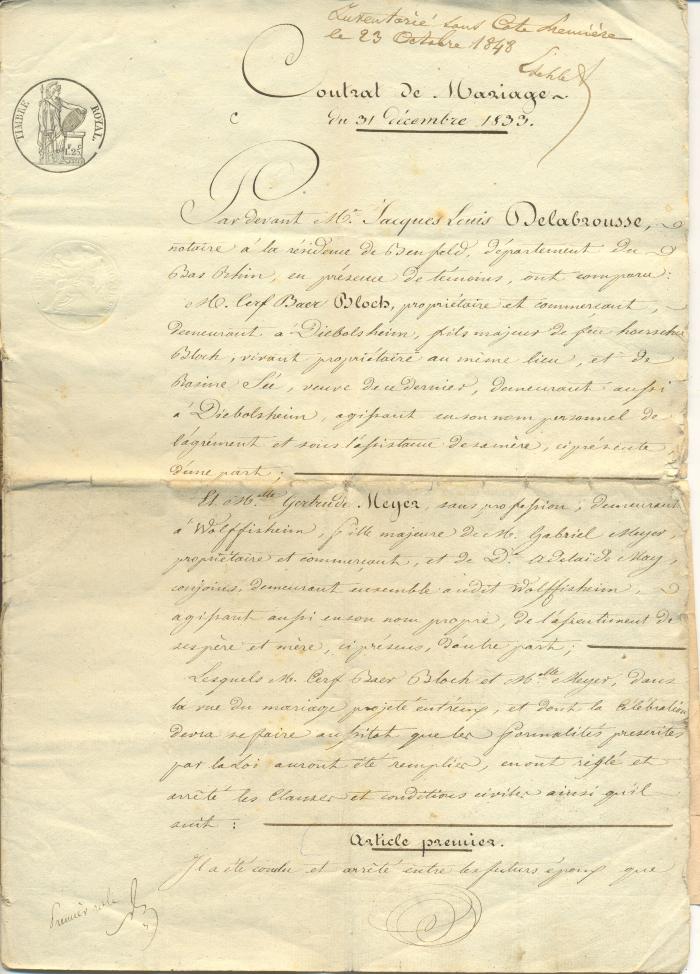 Inventorié sous Cote Première
le 23 Octobre 1848
Contrat de Mariage
du 31 décembre 1833.
TIMBRE ROYAL.
Par devant Mr. Jacques Louis Delabrousse,
notaire à la résidence de Benfeld, département du
Bas Rhin, en présence de témoins, ont comparu:
M. Cerf Baer Bloch, propriétaire et commerçant,
demeurant à Diebolsheim, fils majeur de feu
Bloch, vivant propriétaire au même lieu, et de
Rosine Sée, veuve de ce dernier, demeurant aussi
à Diebolsheim, agissant en son nom personnel de
l'agrément et sous l'assistance de sa mère, ci présente,
d'une part;
Et Mlle Gertrude Meyer, sans profession, demeurant
à Wolffisheim, fille majeure de M. Gabriel Meyer,
propriétaire et commerçant, et de De. Adelaïde May,
conjoints, demeurant ensemble audit Wolffisheim,
agissant aussi en son nom propre, de l'assentiment de
ses père et mère, ci présens, d'autre part;
Lesquels M. Cerf Baer Bloch et Mlle Meyer, dans
la vue du mariage projeté entr'eux, et dont la Célébration
devra se faire aussitôt que les formalités prescrites
par la Loi auront été remplies, en ont réglé et
arrêté les Clauses et conditions civiles ainsi qu'il
suit:
Article premier.
Il a été conclu et arrêté entre les futurs époux que
Premier role